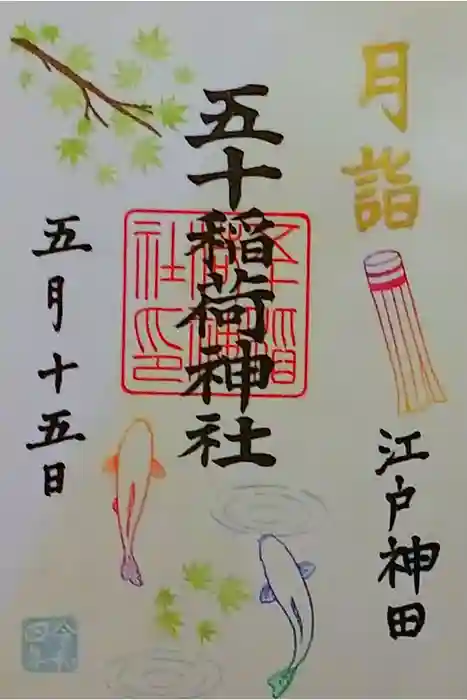 月詣
江戸神田
五十稲荷神社
五月十五日
令和
四年